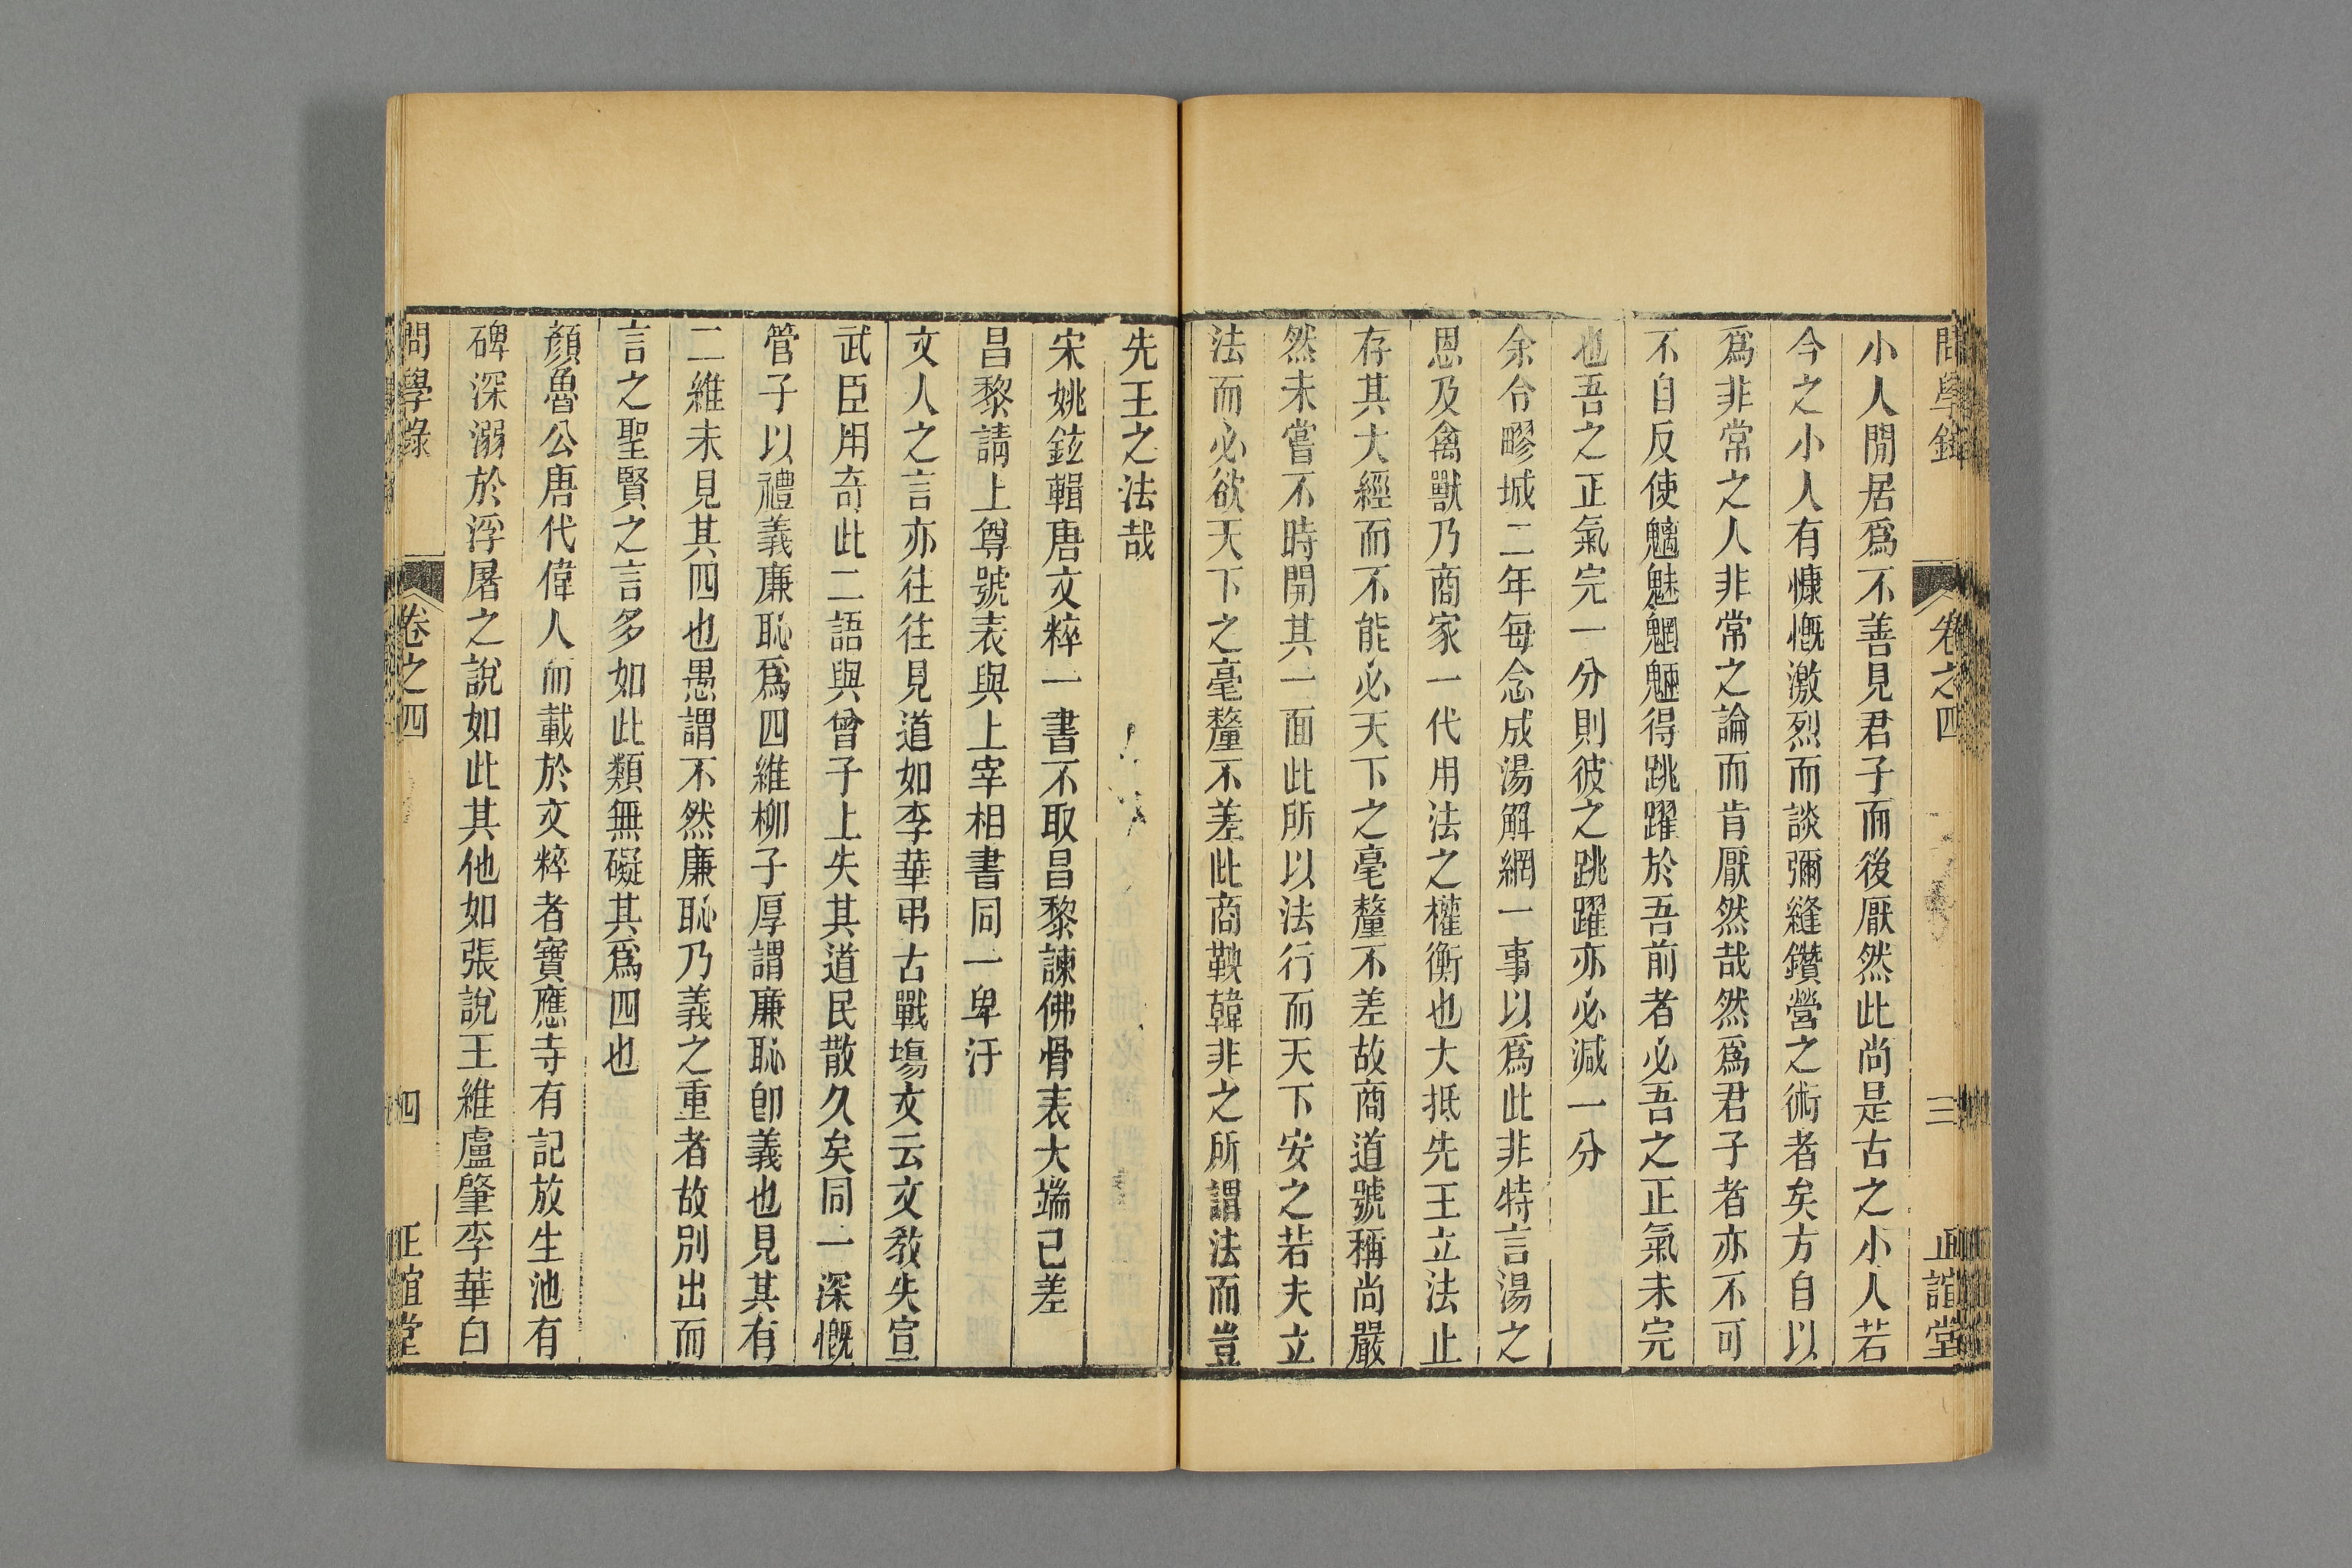 問學錄 卷之四 三 正誼堂
小人閒居爲不善見君子而後厭然此尚是古之小人若
今之小人有慷慨激烈而談彌縫鑽營之術者矣方自以
爲非常之人非常之論而肯厭然哉然爲君子者亦不可
不自反使魑魅魍魎得跳躍於吾前者必吾之正氣未完
也吾之正氣完一分則彼之跳躍亦必減一分
余令疁城二年每念成湯解網一事以爲此非特言湯之
恩及禽獸乃商家一代用法之權衡也大抵先王立法止
存其大經而不能必天下之毫釐不差故商道號稱尚嚴
然未嘗不時開其一面此所以法行而天下安之若夫立
法而必欲天下之毫釐不差此商鞅韓非之所謂法而豈
先王之法哉
宋姚鉉輯唐文粹一書不取昌黎諫佛骨表大端已差
昌黎請上尊號表與上宰相書同一卑汙
文人之言亦往往見道如李華弔古戰塲文云文教失宣
武臣用奇此二語與曾子上失其道民散久矣同一深慨
管子以禮義廉恥爲四維柳子厚謂廉恥卽義也見其有
二維未見其四也愚謂不然廉恥乃義之重者故別出而
言之聖賢之言多如此類無礙其爲四也
顏魯公唐代偉人而載於文粹者寶應寺有記放生池有
碑深溺於浮屠之說如此其他如張說王維盧肇李華白
問學錄 卷之四 四 正誼堂